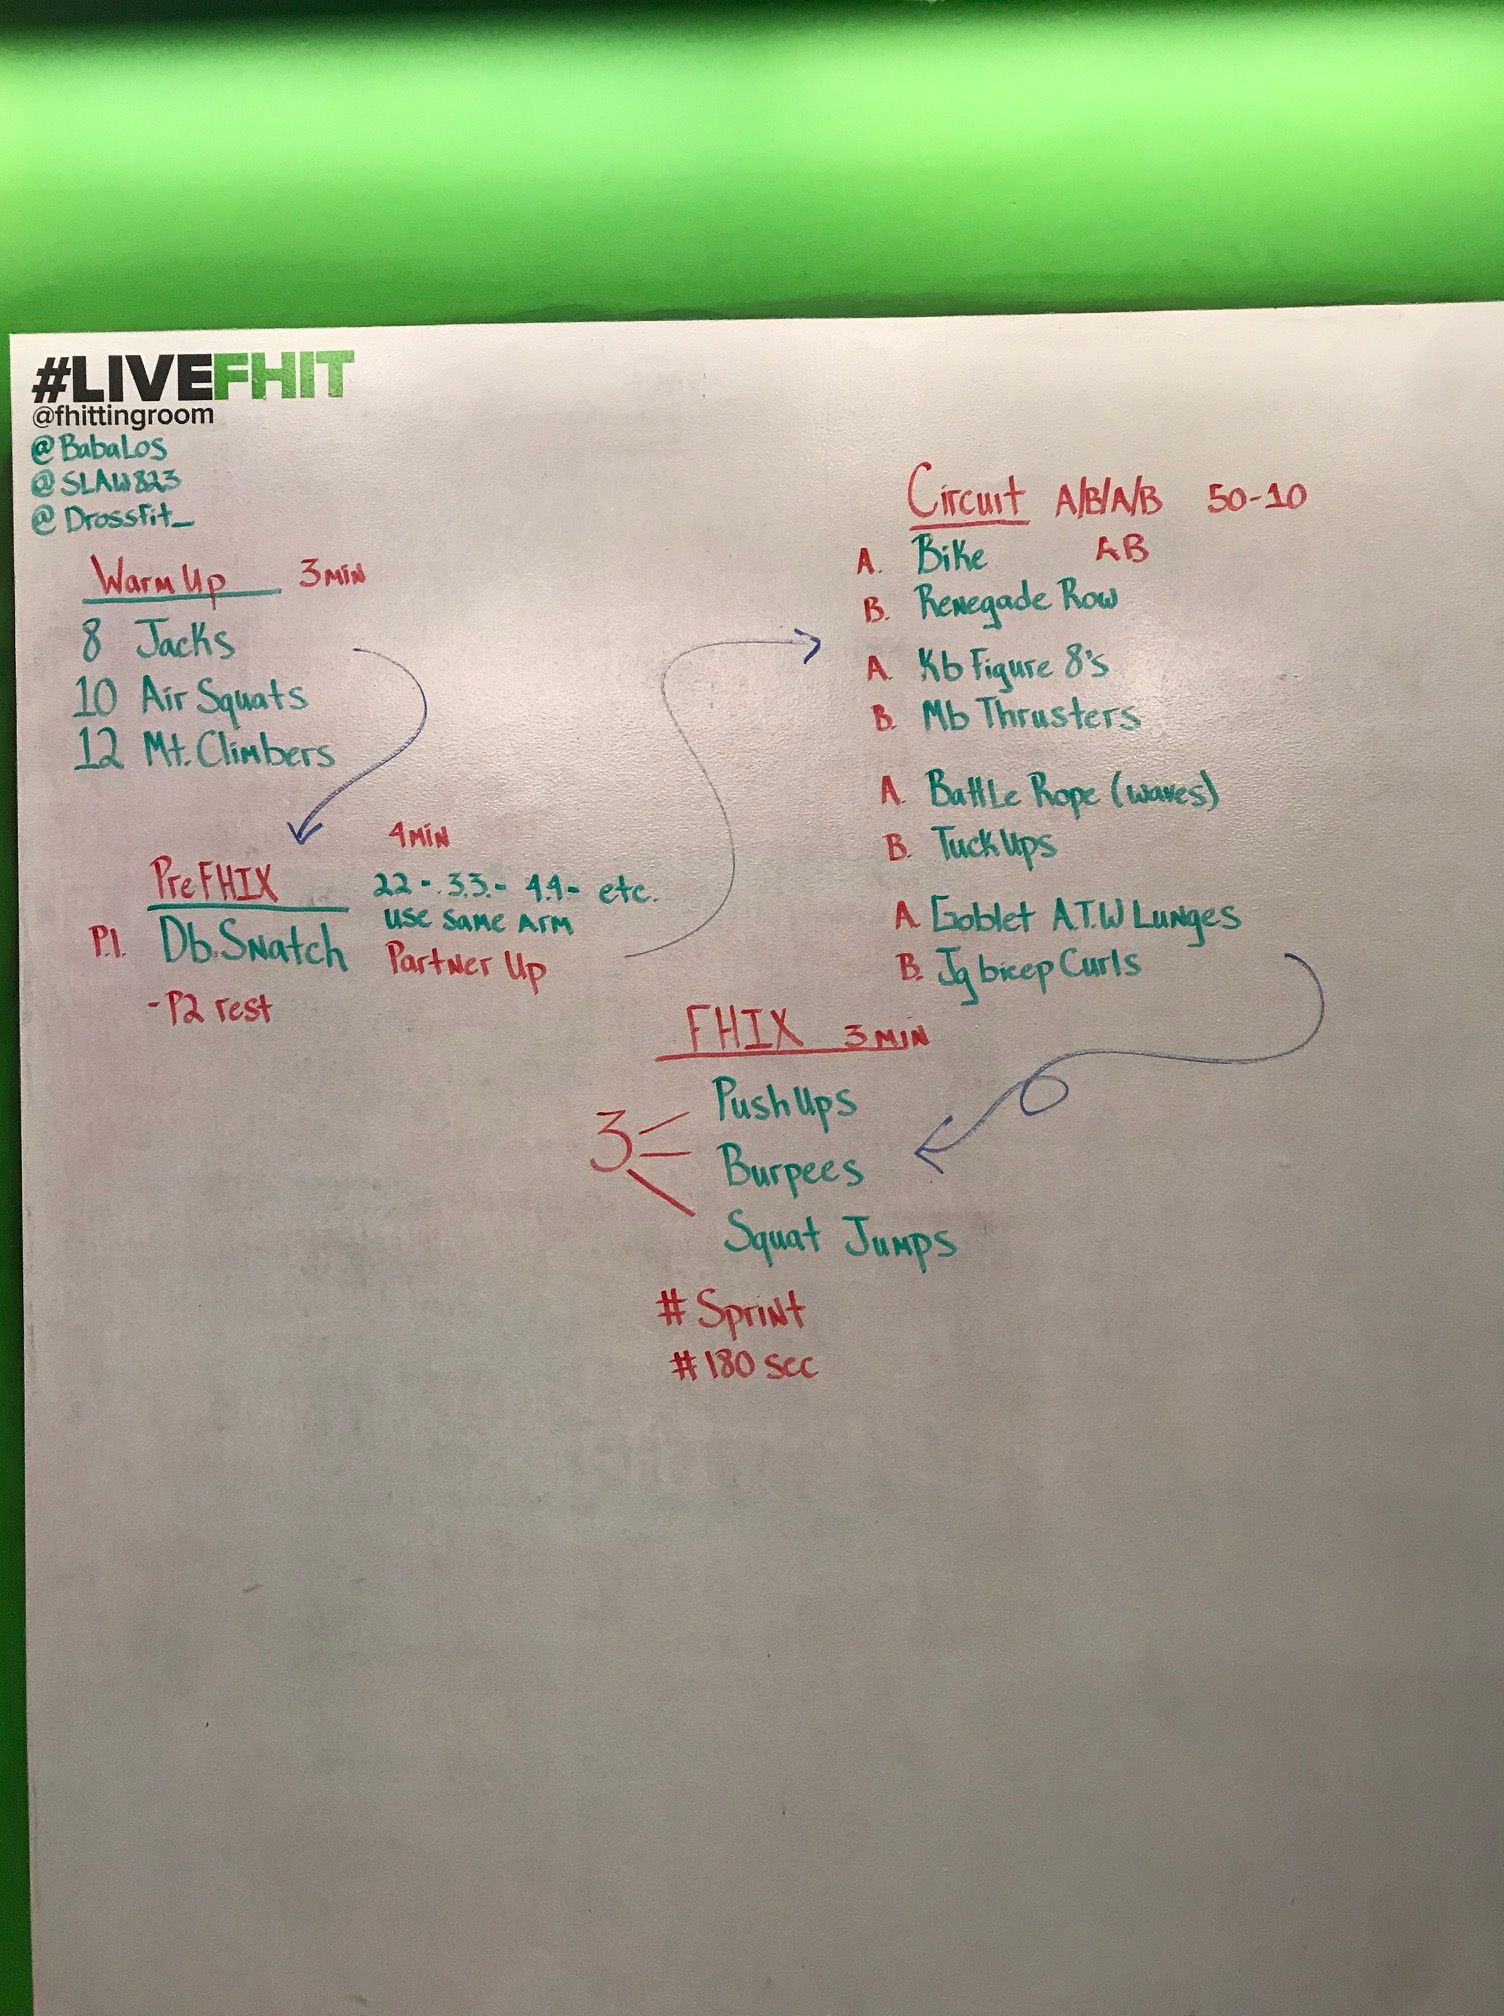 #LIVEFHIT
@fhittingroom
@BabaLos
@SLAW823
@Drossfit_
Warm Up 3 MIN
8 Jacks
10 Air Squats
12 Mt. Climbers
4 MIN
PreFHIX 2.2 - 3.3. - 4.4 - etc.
use same Arm
P.1. Db. Snatch Partner Up
- P2 rest
Circuit A/B/A/B 50-10
A. Bike AB
B. Renegade Row
A. Kb Figure 8's
B. Mb Thrusters
A. Battle Rope (waves)
B. Tuck Ups
A. Goblet A.T.W Lunges
B. Jg bicep Curls
FHIX 3 MIN
3 Push Ups
Burpees
Squat Jumps
# Sprint
# 180 sec